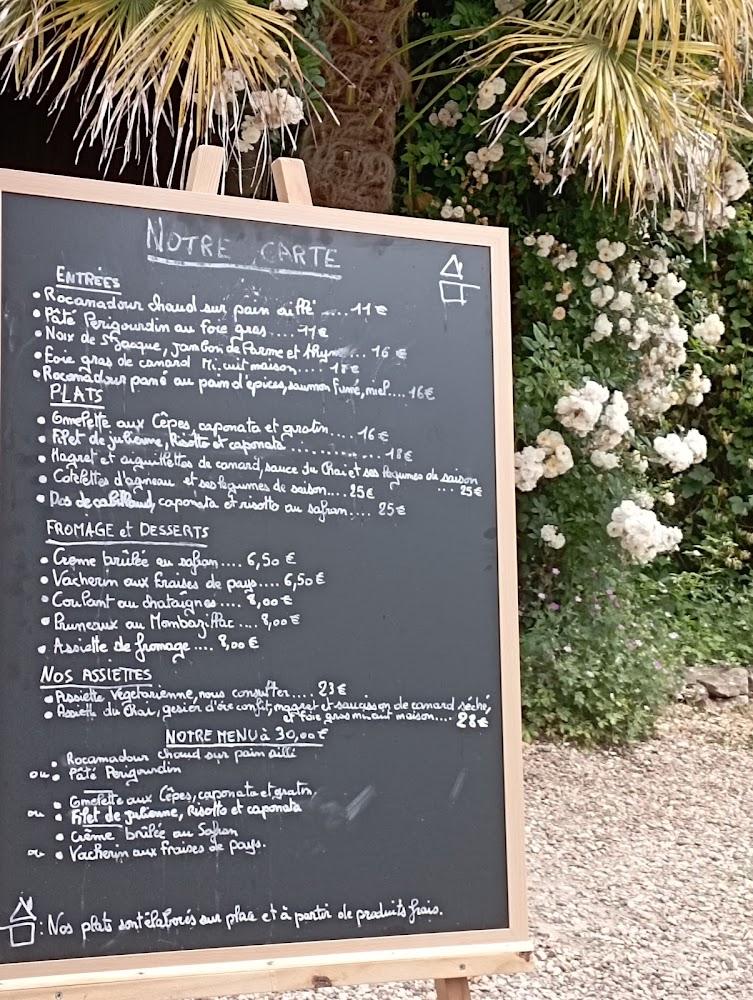 NOTRE CARTE
ENTRÉES
• Rocamadour chaud sur pain aillé .... 11€
• Pâté Perigourdin au foie gras .... 11€
• Noix de St Jacque, jambon de Parme et thym... 16 €
• Foie gras de canard Mi.cuit maison.... 18€
• Rocamadour pané au pain d'épices, saumon fumé, miel.... 16€
PLATS
• Omelette aux Cêpes, caponata et gratin.... 16€
• Filet de julienne, Risotto et caponata .......... 18€
• Magret et aiguillettes de canard, sauce du Chai et ses légumes de saison
... 25€
• Cotelettes d'agneau et ses legumes de saison.... 25€
• Dos de cabillaud, caponata et risotto au safran.... 25€
FROMAGE et DESSERTS
• Crème brûlée au safran .... 6,50 €
• Vacherin aux Fraises de pays.... 6,50€
• Coulant au chataîgnes.... 8,00€
• Pruneaux au Monbazillac .... 8,00€
• Assiette de fromage .... 8,00€
NOS ASSIETTES
• Assiette Végetarienne, nous consulter.... 23€
• Assiette du Chai, gesier d'oie confit, magret et saucisson de canard séché,
et foie gras mi.cuit maison.... 28€
NOTRE MENU à 30,00€
• Rocamadour chaud sur pain aillé
ou • Pâté Perigourdin
• Omelette aux Cêpes, caponata et gratin.
ou • Filet de julienne, Risotto et caponata
• Crème brûlée au Safran
ou • Vacherin aux fraises de pays.
: Nos plats sont élaborés sur place et à partir de produits frais.